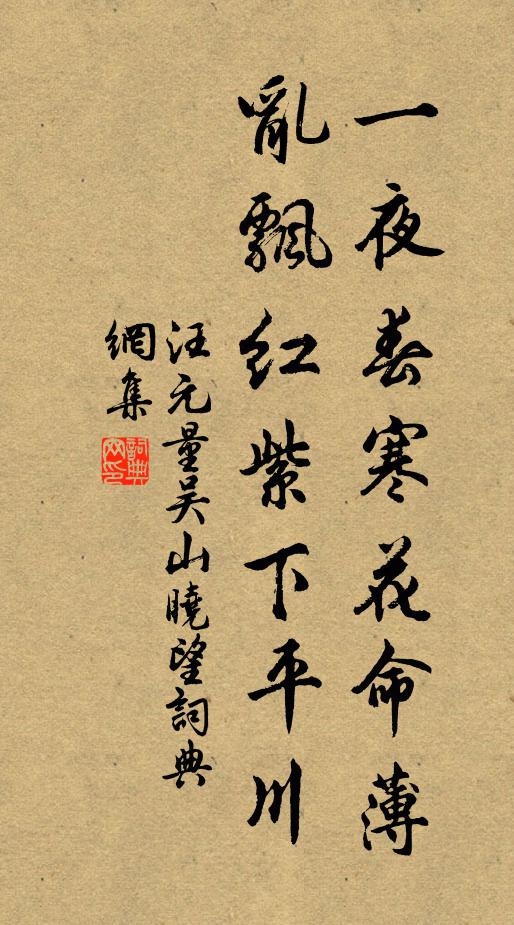 一夜春寒花命薄
亂飄紅紫下平川
汪元量吳山曉望詞典
網集
詞典
网印